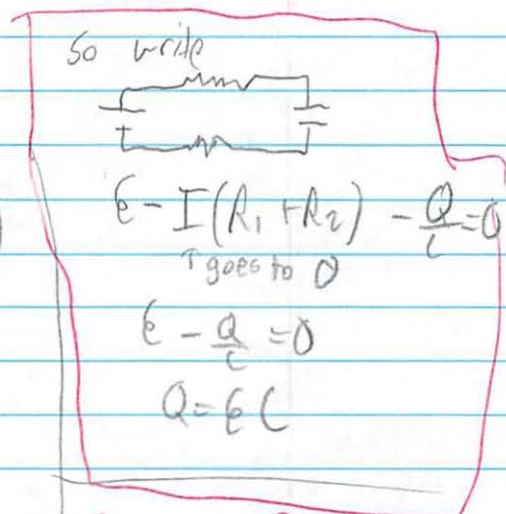 So write
ε - I(R₁ + R₂) - Q/C = 0
↑ goes to 0
ε - Q/C = 0
Q = ε C